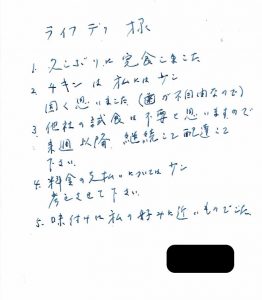 ライフデリ 様
1. 久しぶりに完食しました
2. チキンは私には少し
固く思いました(歯が不自由なので)
3. 他社の試食は不要と思いますので
来週以降 継続して配達して
下さい
4. 料金の支払いについては少し
考えさせて下さい
5. 味付けは私の好みに近いものでした